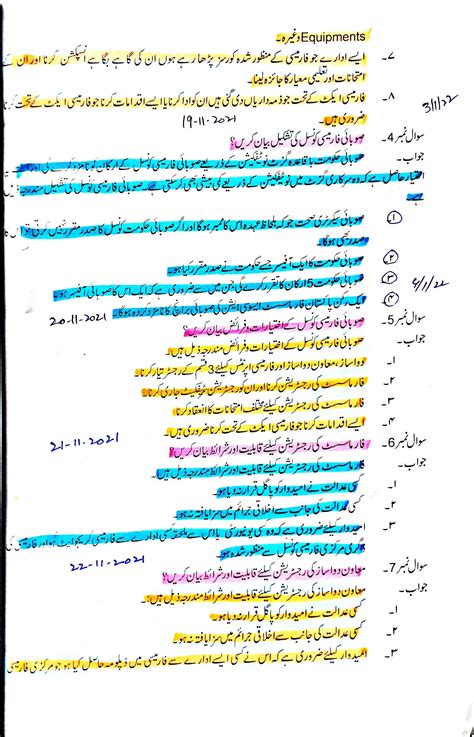 Equipments وغیرہ۔
۷۔ ایسے ادارے جو فارمیسی کے منظور شدہ کورسز پڑھا رہے ہوں ان کی گاہے بگاہے انسپکشن کرنا اور ان کے
امتحانات اور تعلیمی معیار کا جائزہ لینا۔
۸۔ فارمیسی ایکٹ کے تحت جو ذمہ داریاں دی گئی ہیں ان کو ادا کرنا یا ایسے اقدامات کرنا جو فارمیسی ایکٹ کے تحت
ضروری ہیں۔ 19-11-2021 3/1/22
سوال نمبر 4۔ صوبائی فارمیسی کونسل کی تشکیل بیان کریں؟
جواب۔ صوبائی حکومت باقاعدہ گزٹ نوٹیفکیشن کے ذریعے صوبائی فارمیسی کونسل کے ارکان کو نامزد کرے گی اور اسے
اختیار حاصل ہے کہ وہ سرکاری گزٹ میں نوٹیفکیشن کے ذریعے کمی بیشی بھی کر سکتی ہے۔ صوبائی فارمیسی کونسل کی تشکیل مندرجہ ذیل
ہے۔
① صوبائی سیکرٹری صحت جو کہ بلحاظ عہدہ اس کا ممبر ہوگا اور اگر صوبائی حکومت کونسل کا صدر مقرر نہیں کرتی تو اس کا
صدر بھی ہوگا۔
② صوبائی حکومت کا ایک آفیسر جسے حکومت نے صدر مقرر کیا ہو۔
③ صوبائی حکومت 5 ارکان کا تقرر کرے گی جن میں سے ضروری ہے کہ ایک اس کا صوبائی آفیسر ہو۔ 4/1/22
④ ایک رکن پاکستان فارمسٹ ایسوسی ایشن کی صوبائی برانچ کا نامزد کردہ ہوگا۔ 20-11-2021
سوال نمبر 5۔ صوبائی فارمیسی کونسل کے اختیارات و فرائض بیان کریں؟
جواب۔ صوبائی فارمیسی کونسل کے اختیارات و فرائض مندرجہ ذیل ہیں۔
۱۔ دوا ساز، معاون دوا ساز اور فارمیسی اپرنٹس کیلئے 3 قسم کے رجسٹر تیار کرنا۔
۲۔ فارمسسٹ کی رجسٹریشن کرنا اور ان کو رجسٹریشن سرٹیفکیٹ جاری کرنا۔
۳۔ فارمسسٹ کی رجسٹریشن کیلئے مختلف امتحانات کا انعقاد کرنا۔
۴۔ ایسے اقدامات کرنا جو فارمیسی ایکٹ کے تحت کرنا ضروری ہیں۔
سوال نمبر 6۔ فارمسسٹ کی رجسٹریشن کیلئے قابلیت اور شرائط بیان کریں؟ 21-11-2021
جواب۔ فارمسسٹ کی رجسٹریشن کیلئے قابلیت اور شرائط مندرجہ ذیل ہیں۔
۱۔ کسی عدالت نے امیدوار کو پاگل قرار نہ دیا ہو۔
۲۔ کسی عدالت کی جانب سے اخلاقی جرائم میں سزا یافتہ نہ ہو۔
۳۔ امیدوار کیلئے ضروری ہے کہ وہ کسی یونیورسٹی یا اس سے ملحقہ کسی ادارے سے فارمیسی گریجوایٹ ہو اور فارمیسی کی
ڈگری مرکزی فارمیسی کونسل سے منظور شدہ ہو۔ 22-11-2021
سوال نمبر 7۔ معاون دوا ساز کی رجسٹریشن کیلئے قابلیت اور شرائط بیان کریں؟
جواب۔ معاون دوا ساز کی رجسٹریشن کیلئے قابلیت اور شرائط مندرجہ ذیل ہیں:
۱۔ کسی عدالت نے امیدوار کو پاگل قرار نہ دیا ہو۔
۲۔ کسی عدالت کی جانب سے اخلاقی جرائم میں سزا یافتہ نہ ہو۔
۳۔ امیدوار کیلئے ضروری ہے کہ اس نے کسی ایسے ادارے سے فارمیسی میں ڈپلومہ حاصل کیا ہو جو مرکزی فارمیسی